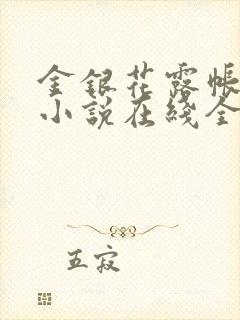 金银花露帐
小说在线全
五寂